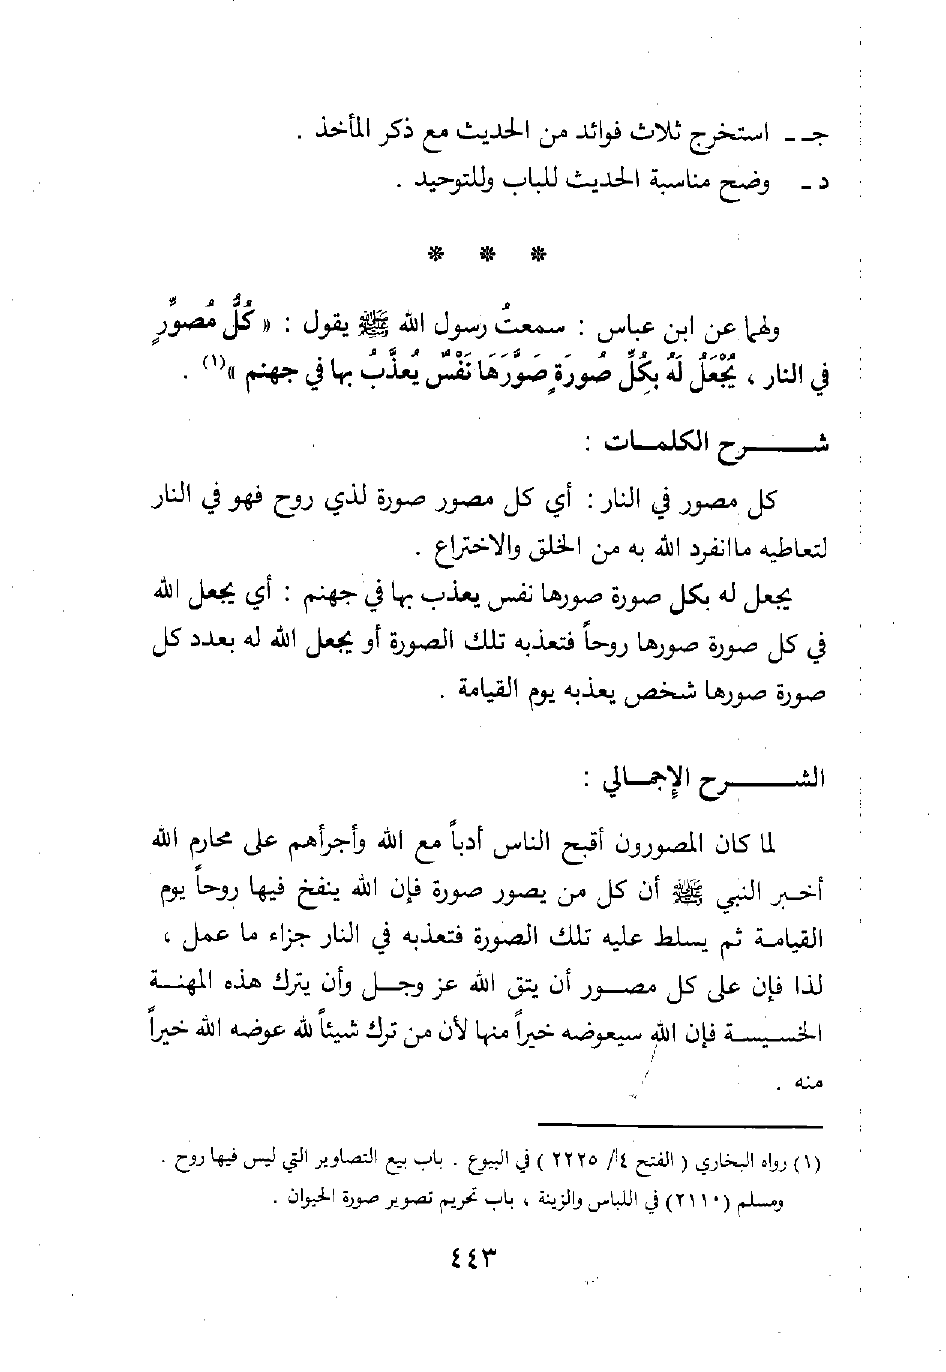 جـ ـ استخرج ثلاث فوائد من الحديث مع ذكر المأخذ .
د ـ وضح مناسبة الحديث للباب وللتوحيد .
* * *
ولهما عن ابن عباس : سمعتُ رسول الله ﷺ يقول : « كُلُّ مُصوِّرٍ
في النار ، يُجْعَلُ لَهُ بِكُلِّ صُورَةٍ صَوَّرَهَا نَفْسٌ يُعذَّبُ بها في جهنم »(١) .
شــــرح الكلمــات :
كل مصور في النار : أي كل مصور صورة لذي روح فهو في النار
لتعاطيه ماانفرد الله به من الخلق والاختراع .
يجعل له بكل صورة صورها نفس يعذب بها في جهنم : أي يجعل الله
في كل صورة صورها روحاً فتعذبه تلك الصورة أو يجعل الله له بعدد كل
صورة صورها شخص يعذبه يوم القيامة .
الشــــرح الإجمـالي :
لما كان المصورون أقبح الناس أدباً مع الله وأجرأهم على محارم الله
أخـبر النبي ﷺ أن كل من يصور صورة فإن الله ينفخ فيها روحاً يوم
القيامـة ثم يسلط عليه تلك الصورة فتعذبه في النار جزاء ما عمل ،
لذا فإن على كل مصـور أن يتق الله عز وجـل وأن يترك هذه المهنـة
الخسيسـة فإن الله سيعوضه خيراً منها لأن من ترك شيئاً لله عوضه الله خيراً
منه .
(١) رواه البخاري ( الفتح ٤/ ٢٢٢٥ ) في البيوع . باب بيع التصاوير التي ليس فيها روح .
ومسلم (٢١١٠) في اللباس والزينة ، باب تحريم تصوير صورة الحيوان .
٤٤٣